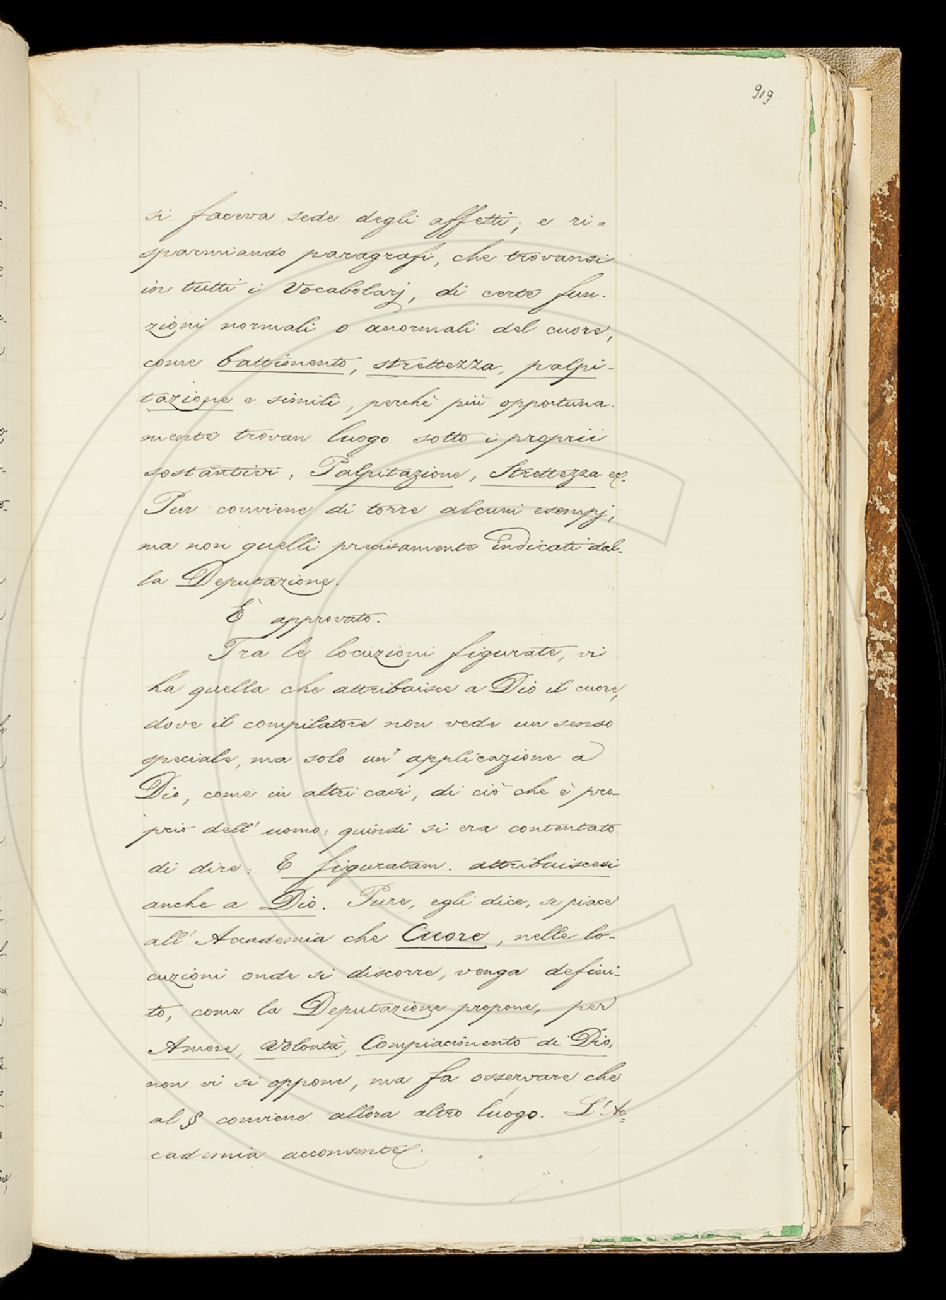 919
si faceva sede degli affetti; e ri=
sparmiando paragrafi, che trovansi
in tutti i Vocabolarj, di certe fun-
zioni normali o anormali del cuore,
come battimento, strettezza, palpi-
tazione e simili, perchè più opportuna-
mente trovan luogo sotto i proprii
sostantivi, Palpitazione, Strettezza ec.
Pur conviene di torre alcuni esempj;
ma non quelli precisamente indicati dal-
la Deputazione.
È approvato.
Tra le locuzioni figurate, vi
ha quella che attribuisce a Dio il cuore,
dove il compilatore non vede un senso
speciale, ma solo un' applicazione a
Dio, come in altri casi, di ciò che è pro-
prio dell' uomo; quindi si era contentato
di dire: E figuratam. attribuiscesi
anche a Dio. Pure, egli dice, se piace
all' Accademia che Cuore, nelle lo-
cuzioni onde si discorre, venga defini-
to, come la Deputazione propone, per
Amore, Volontà, Compiacimento di Dio,
non vi si oppone, ma fa osservare che
al § conviene allora altro luogo. L'Ac-
cademia acconsente.